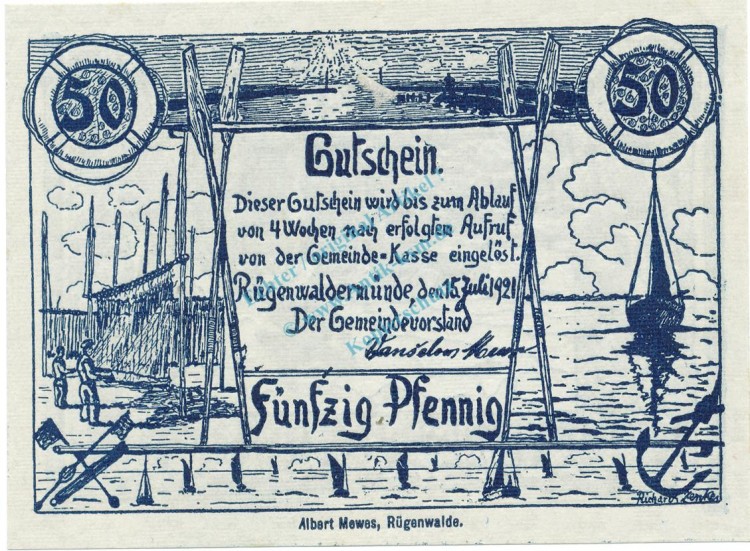 50
50
Gutschein.
Dieser Gutschein wird bis zum Ablauf
von 4 Wochen nach erfolgtem Aufruf
von der Gemeinde-Kasse eingelöst.
Rügenwaldermünde, den 15. Juli 1921
Der Gemeindevorstand
Fünfzig Pfennig
Richard Zenke
Albert Mewes, Rügenwalde.